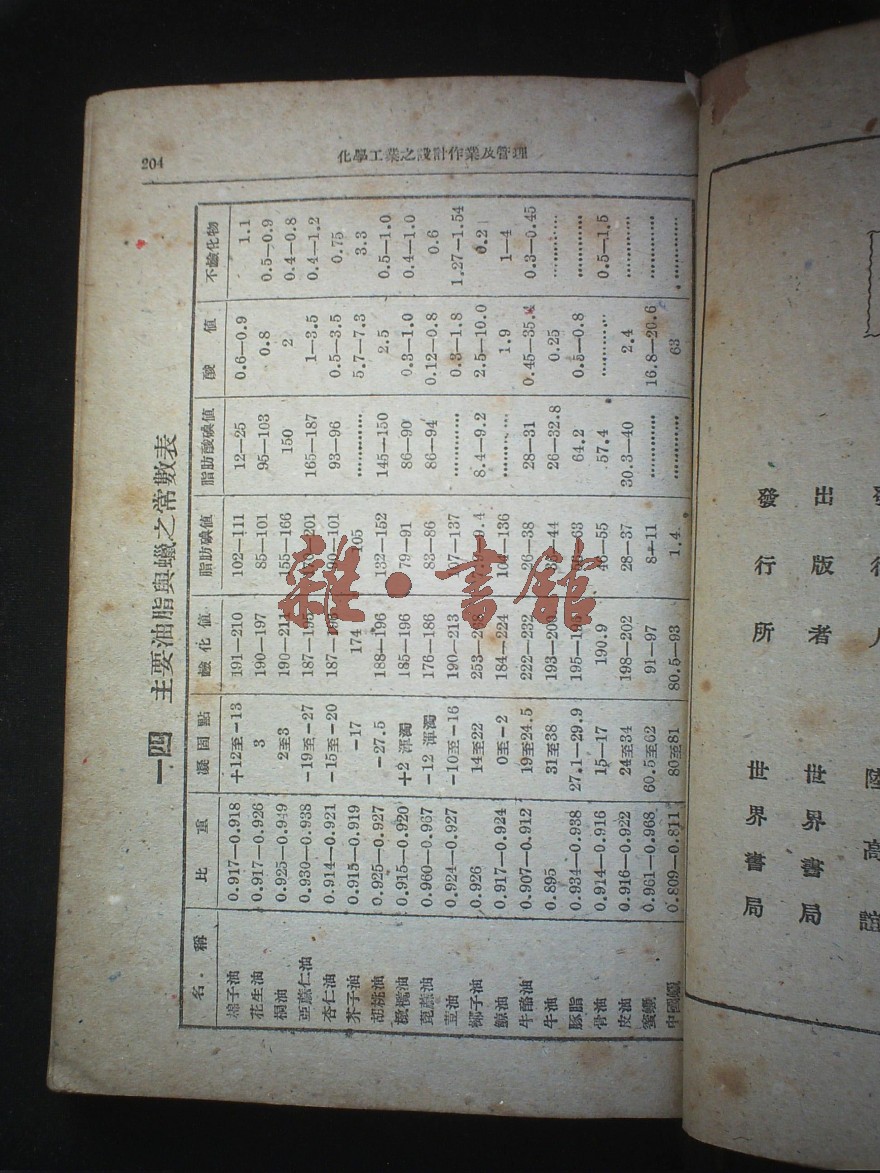 204
化學工業之設計作業及管理
一四 主要油脂與蠟之常數表
名稱 比重 凝固點 鹼化值 脂肪碘值 脂肪酸碘值 酸值 不鹼化物
棉子油 0.917—0.918 +12至-13 191—210 102—111 12—25 0.6—0.9 1.1
花生油 0.917—0.926 3 190—197 85—101 95—103 0.8 0.5—0.9
桐油 0.925—0.949 2至3 190—211 155—166 150 2 0.4—0.8
亞蔴仁油 0.930—0.938 -19至-27 187—195 165—187 1—3.5 0.4—1.2
杏仁油 0.914—0.921 -15至-20 93—96 0.5—3.5 0.75
芥子油 0.915—0.919 -17 174 105 ………… 5.7—7.3 3.3
胡桃油 0.925—0.927 -27.5 188—196 132—152 145—150 2.5 0.5—1.0
橄欖油 0.915—0.920 +2 渾濁 185—196 79—91 86—90 0.3—1.0 0.4—1.0
蓖蔴油 0.960—0.967 -12 渾濁 176—186 83—86 86—94 0.12—0.8 0.6
荳油 0.924—0.927 -10至-16 190—213 ………… 0.3—1.8 1.27—1.54
椰子油 0.926 14至22 8.4—9.2 2.5—10.0 0.2
鯨油 0.917—0.924 0至-2 184—224 ………… 1.9 1—4
牛酪油 0.907—0.912 19至24.5 222—232 26—38 28—31 0.45—35.4 0.3—0.45
牛油 0.895 31至38 193—200 26—32.8 0.25 …………
豚脂 0.934—0.938 27.1—29.9 64.2 0.5—0.8 …………
骨油 0.914—0.916 15—17 190.9 46—55 57.4 ………… 0.5—1.5
皮油 0.916—0.922 24至34 198—202 28—37 30.3—40 2.4 …………
蜜蠟 0.961—0.968 60.5至62 91—97 8—11 ………… 16.8—20.6 …………
中國蠟 0.809—0.811 80至81 80.5—93 1.4 ………… 63 …………
雜·書館
陸高誼
出版者 世界書局
發行所 世界書局